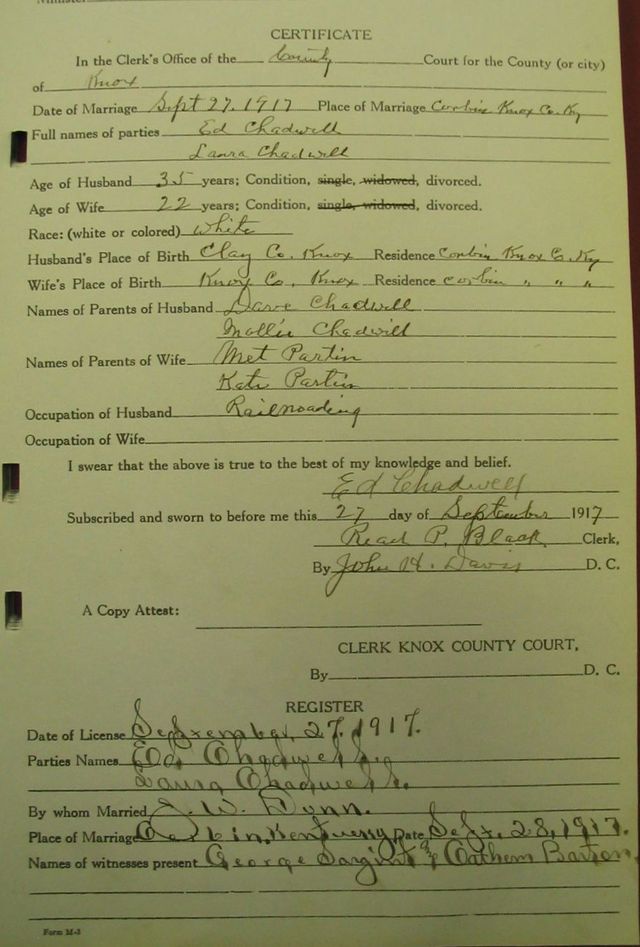 CERTIFICATE
In the Clerk's Office of the County Court for the County (or city)
of Knox
Date of Marriage Sept 27, 1917 Place of Marriage Corbin Knox Co. Ky
Full names of parties Ed Chadwell
Laura Chadwell
Age of Husband 35 years; Condition, single, widowed, divorced.
Age of Wife 22 years; Condition, single, widowed, divorced.
Race: (white or colored) White
Husband's Place of Birth Clay Co. Knox Residence Corbin Knox Co. Ky
Wife's Place of Birth Knox Co. Knox Residence Corbin " " "
Names of Parents of Husband Dave Chadwell
Mollie Chadwell
Names of Parents of Wife Met Partin
Kate Partin
Occupation of Husband Railroading
Occupation of Wife
I swear that the above is true to the best of my knowledge and belief.
Ed Chadwell
Subscribed and sworn to before me this 27 day of September 1917
Read P. Black Clerk,
By John H. Davis D. C.
A Copy Attest:
CLERK KNOX COUNTY COURT,
By D. C.
REGISTER
Date of License September 27, 1917.
Parties Names Ed Chadwell.
Laura Chadwell.
By whom Married J. W. Dunn.
Place of Marriage Corbin, Kentucky Date Sept. 28, 1917.
Names of witnesses present George Sargint & Cathern Barton
Form M-3